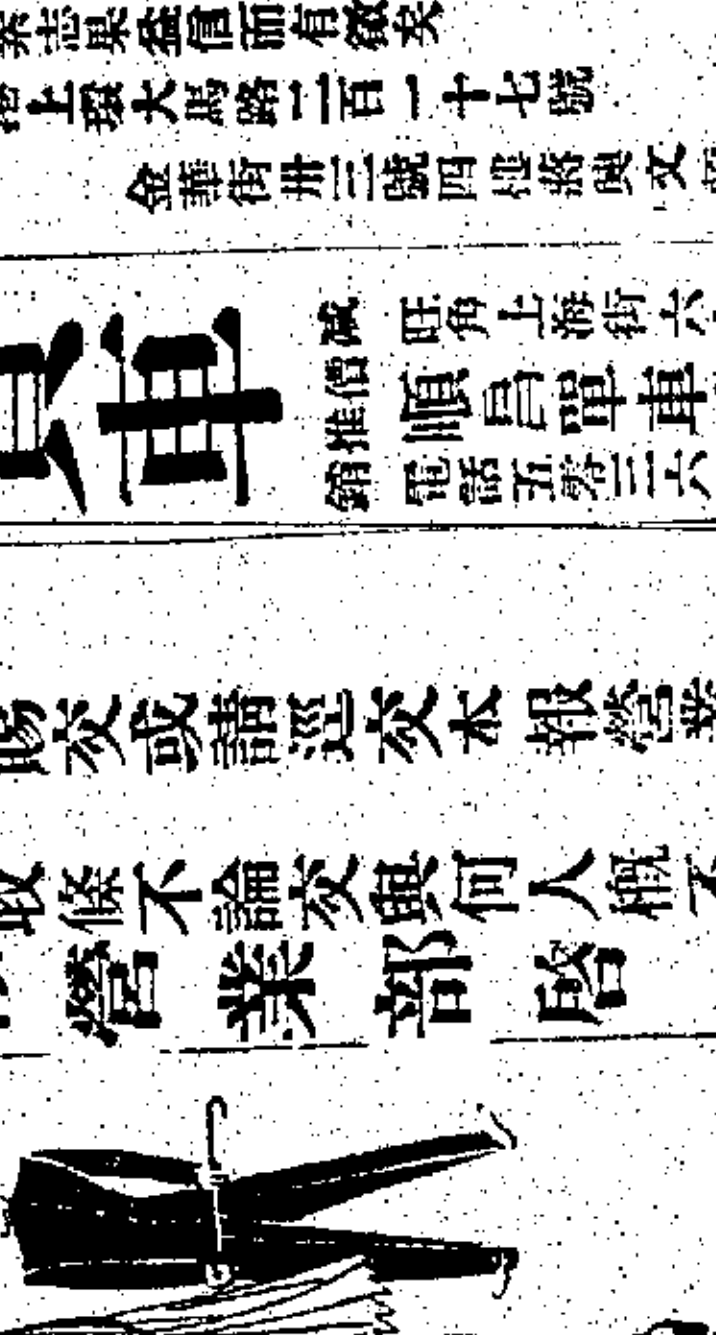 信而有徵矣
上環大馬路二百一十七號
金華街卅三號四樓
車
減價推銷
旺角上海街六
順昌單車
電話五零三六
賜交或請逕交本報營業
收條不論交與何人概不
營業部啓